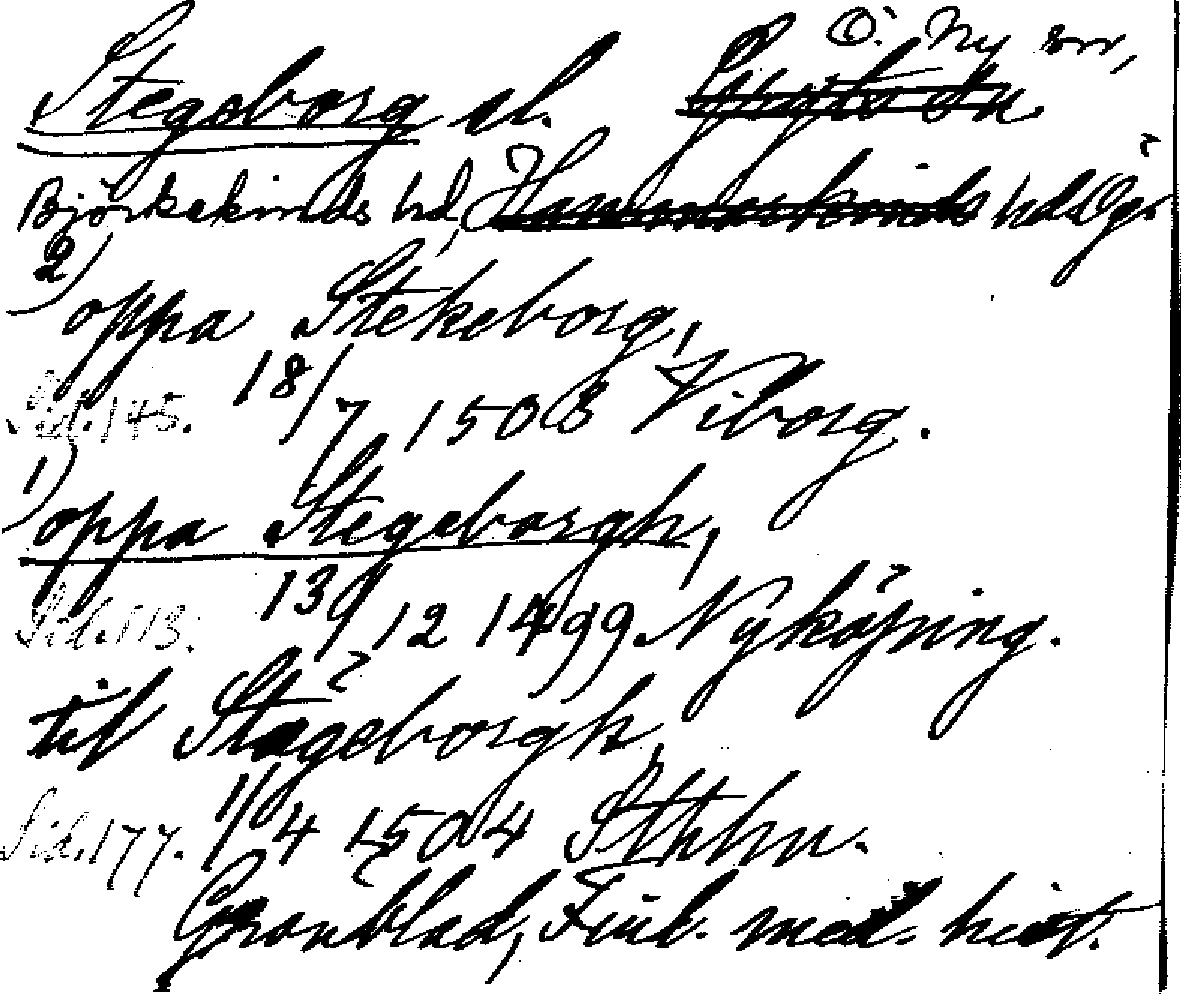 Stegeborg sl. Ö. Ny srr,
Björkekinds hd, Hammarkinds hd Ög.
2) oppa Stekeborg,
Sid. 145. 18/7 1508 Viborg.
1) oppa Stegeborgh,
Sid. 113. 13/12 1499 Nyköping.
til Stägeborgh,
Sid. 177. 1/4 1504 Sthlm.
Grönblad, Finl. med. hist.